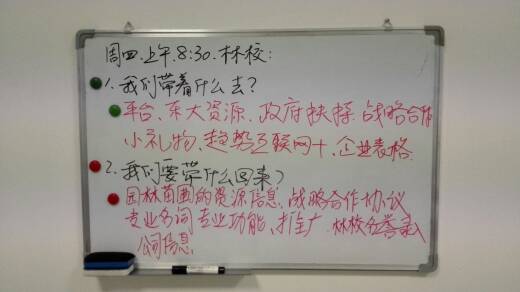 周四.上午8:30.林校:
1.我们带着什么去?
平台、东大资源、政府扶择.战略合作
小礼物、趋势互联网+、企业表格.
2.我们要带什么回来?
园林苗圃的资源信息、战略合作协议
专业名词专业功能、推广.林校名录入
公司信息